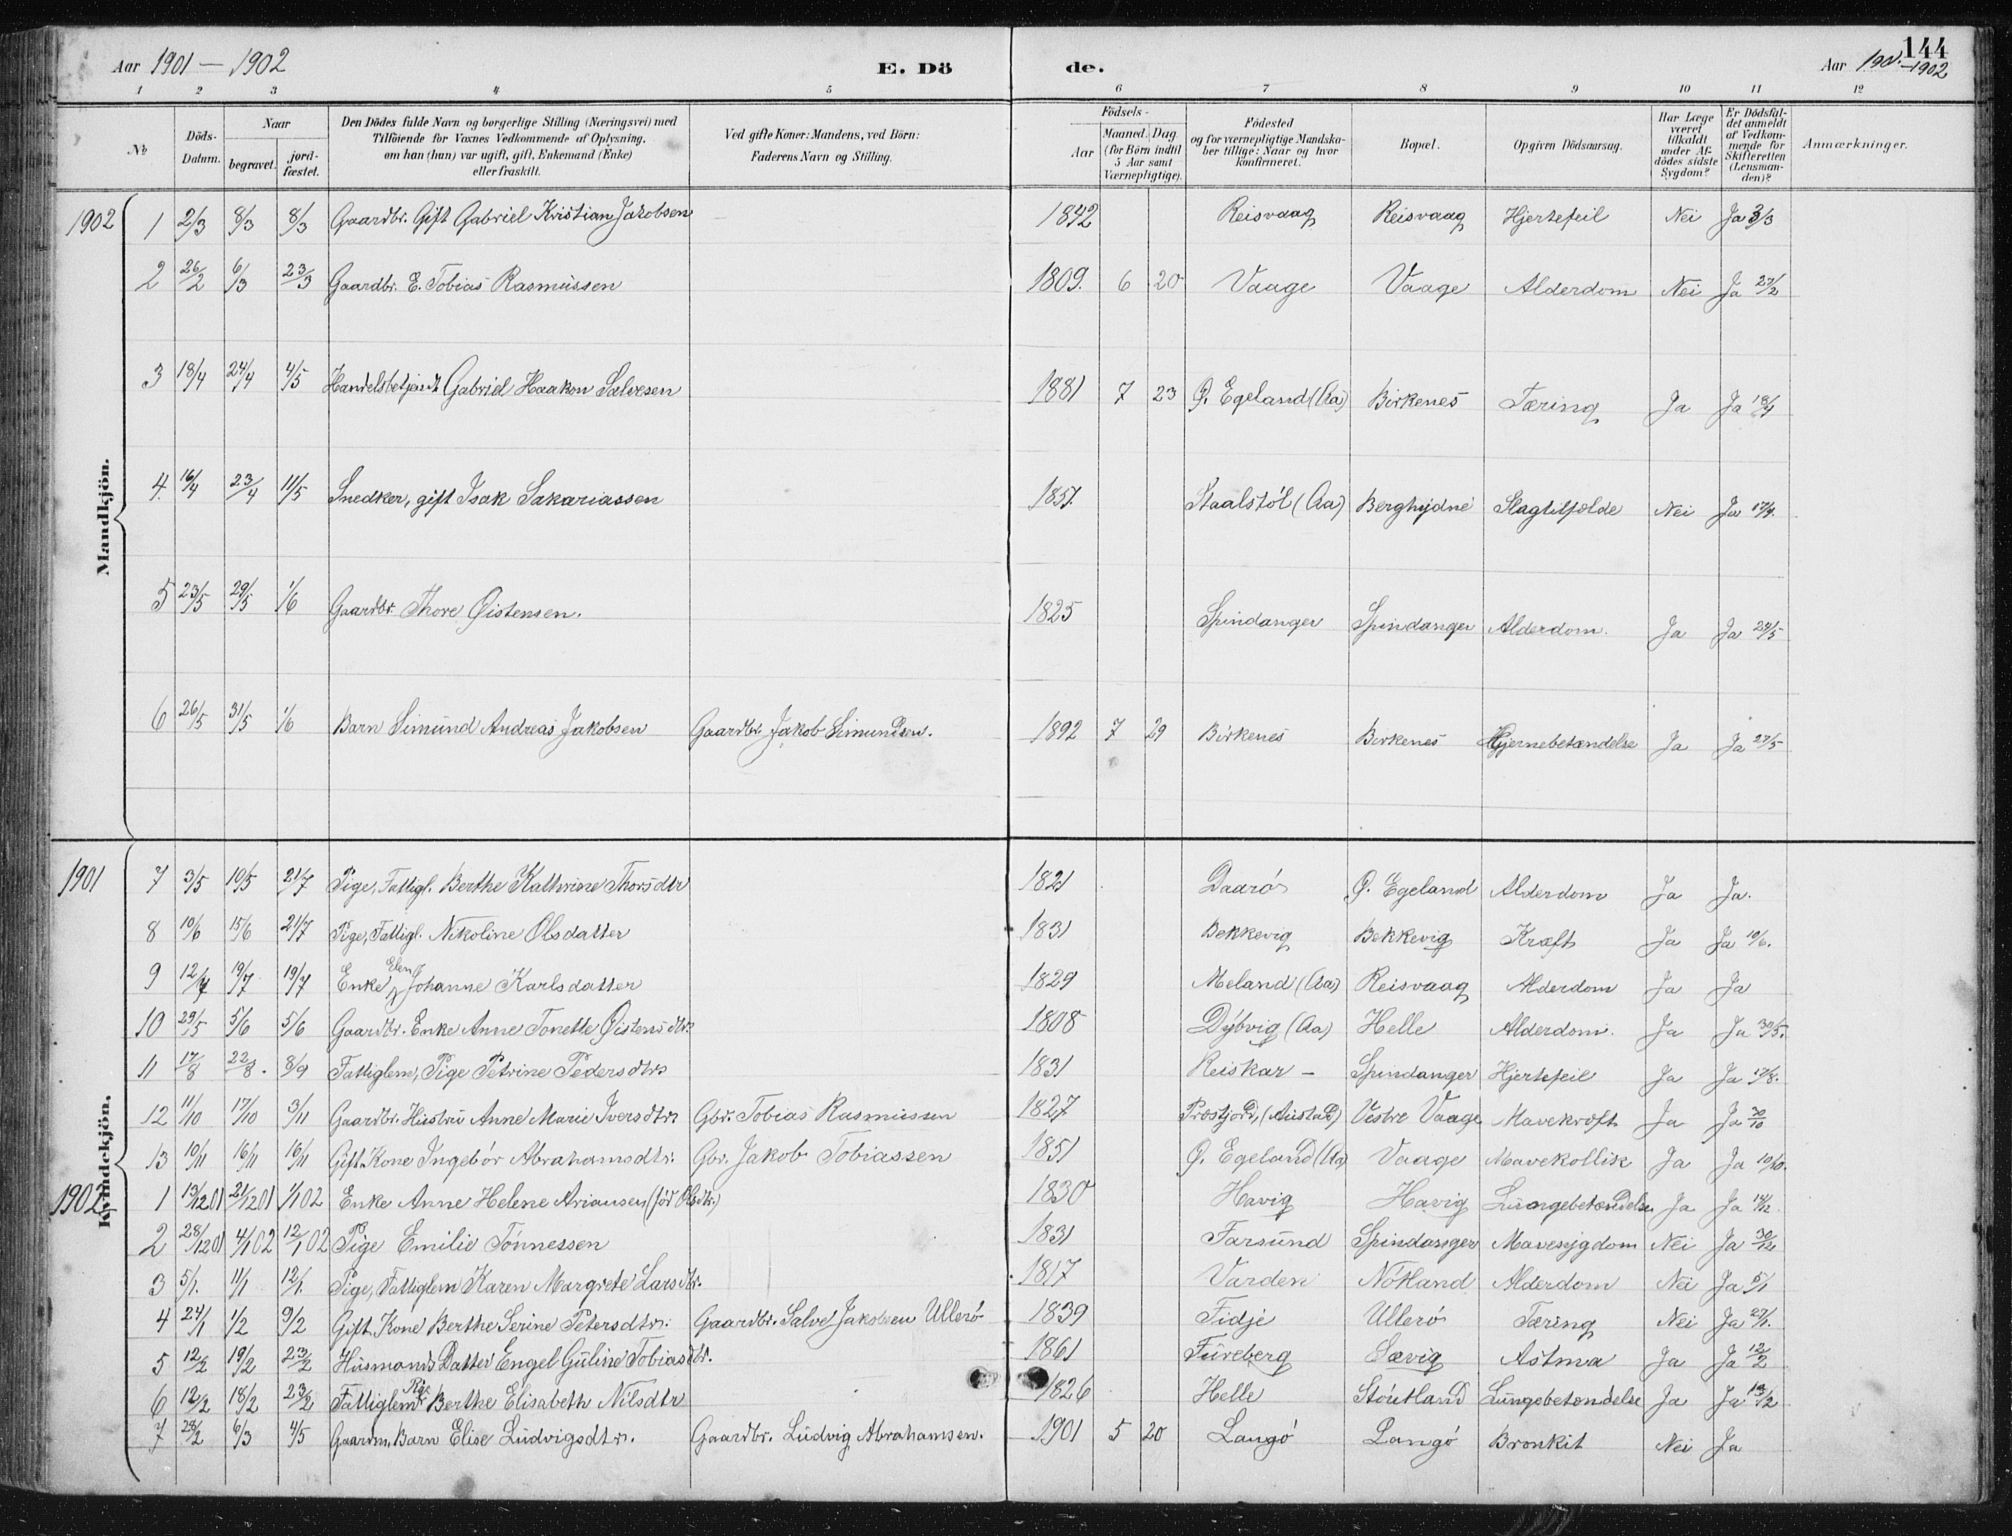 144
Aar 1901 — 1902 E. Dö de. Aar 1901-1902
1 2 3 4 5 6 7 8 9 10 11 12
№ Döds-Datum. Naar begravet. jordfæstet. Den Dödes fulde Navn og borgerlige Stilling (Næringsvei) med Tilföiende for Voxnes Vedkommende af Oplysning, om han (hun) var ugift, gift, Enkemand (Enke) eller fraskilt. Ved gifte Koner: Mandens, ved Börn: Faderens Navn og Stilling. Födsels- Aar Maaned. Dag (for Börn indtil 5 Aar samt Værnepligtige). Födested og for værnepligtige Mandskaber tillige: Naar og hvor konfirmeret. Bopæl. Opgiven Dödsaarsag. Har Læge været tilkaldt under Afdödes sidste Sygdom? Er Dödsfaldet anmeldt af Vedkommende for Skifteretten (Lensmanden)? Anmærkninger.
Mandkjön.
1902 1 2/3 8/3 8/3 Gaardbr. Gift Gabriel Kristian Jakobsen 1842 Reisvaag Reisvaag Hjertefeil Nei Ja 3/3
2 26/2 6/3 23/3 Gaardbr. E. Tobias Rasmussen 1809. 6 20 Vaage Vaage Alderdom Nei Ja 27/2
3 18/4 24/4 4/5 Handelsbetjent Gabriel Haakon Salvesen 1881 7 23 Ø. Egeland (Aa) Birkenes Tæring Ja Ja 18/4
4. 16/4 23/4 11/5 Snedker, gift Isak Sakariassen 1857. Staalstöl (Aa) Berghydne Slagtilfælde Nei Ja 17/4.
5 23/5 29/5 1/6 Gaardbr. Thore Øistensen. 1825 Spindanger Spindanger Alderdom. Ja Ja 24/5
6 26/5 31/5 1/6 Barn Simund Andreas Jakobsen Gaardbr. Jakob Simundsen. 1892 7 29 Birkenes Birkenes Hjernebetændelse Ja Ja 27/5
Kvindekjön.
1901 7 3/5 10/5 21/7 Pige, Fattigl. Berthe Kathrine Thorsdtr 1821 Daarö Ø. Egeland Alderdom Ja Ja.
8 10/6 15/6 21/7 Pige, Fattigl. Nikoline Olsdatter 1831 Bekkevig Bekkevig Kræft Ja Ja 10/6.
9 12/7 19/7 19/7 Enke Elen Johanne Karlsdatter 1829 Meland (Aa) Reisvaag Alderdom Ja Ja
10 29/5 5/6 5/6 Gaardbr. Enke Anne Tonette Øistensdtr. 1808 Dybvig (Aa) Helle Alderdom. Ja Ja 30/5.
11 17/8 22/8. 8/9 Fattiglem, Pige Petrine Pedersdtr. 1831 Reiskar — Spindanger Hjertefeil Ja Ja 17/8.
12 11/10 17/10 3/11 Gaardbr. Hustru Anne Marie Iversdtr. Gbr. Tobias Rasmussen 1827 Præstjord, (Austad) Vestre Vaage Mavekræft Ja Ja
13 10/11 16/11 16/11 Gift Kone Ingebör Abrahamsdtr. Gbr. Jakob Tobiassen 1851 Ø. Egeland (Aa) Vaage Mavekollik Ja Ja 10/10.
1902 1 13/12 01 21/12 01 1/1 02 Enke Anne Helene Ariansen (föd Olsdtr.) 1830 Havig Havig Lungebetændelse Ja Ja 14/12.
2 28/12 01 4/1 02 12/1 02 Pige Emilie Tönnessen 1831 Farsund Spindanger Mavesygdom Nei Ja 30/12
3 5/1. 11/1 12/1. Pige, Fattiglem Karen Margrete Larsdtr. 1817 Varden Nötland Alderdom Nei Ja 5/1
4 24/1 1/2 9/2 Gift Kone Berthe Serine Petersdtr. Gaardbr. Salve Jakobsen Ullerö 1839 Fidje Ullerö Tæring Nei Ja 27/1.
5 12/2 19/2 23/2 Husmands Datter Engel Guline Tobiasdtr. 1861 Fureberg Sævig Astma Ja Ja 12/2
6 12/2 18/2 23/2 Fattiglem Pige Berthe Elisabeth Nilsdtr 1826 Helle Stoutland Lungebetændelse Ja Ja 13/2
7 28/2 6/3 4/5 Gaardm. Barn Elise Ludvigsdtr. Gaardbr. Ludvig Abrahamsen. 1901 5 20 Langö Langö Bronkit Nei Ja